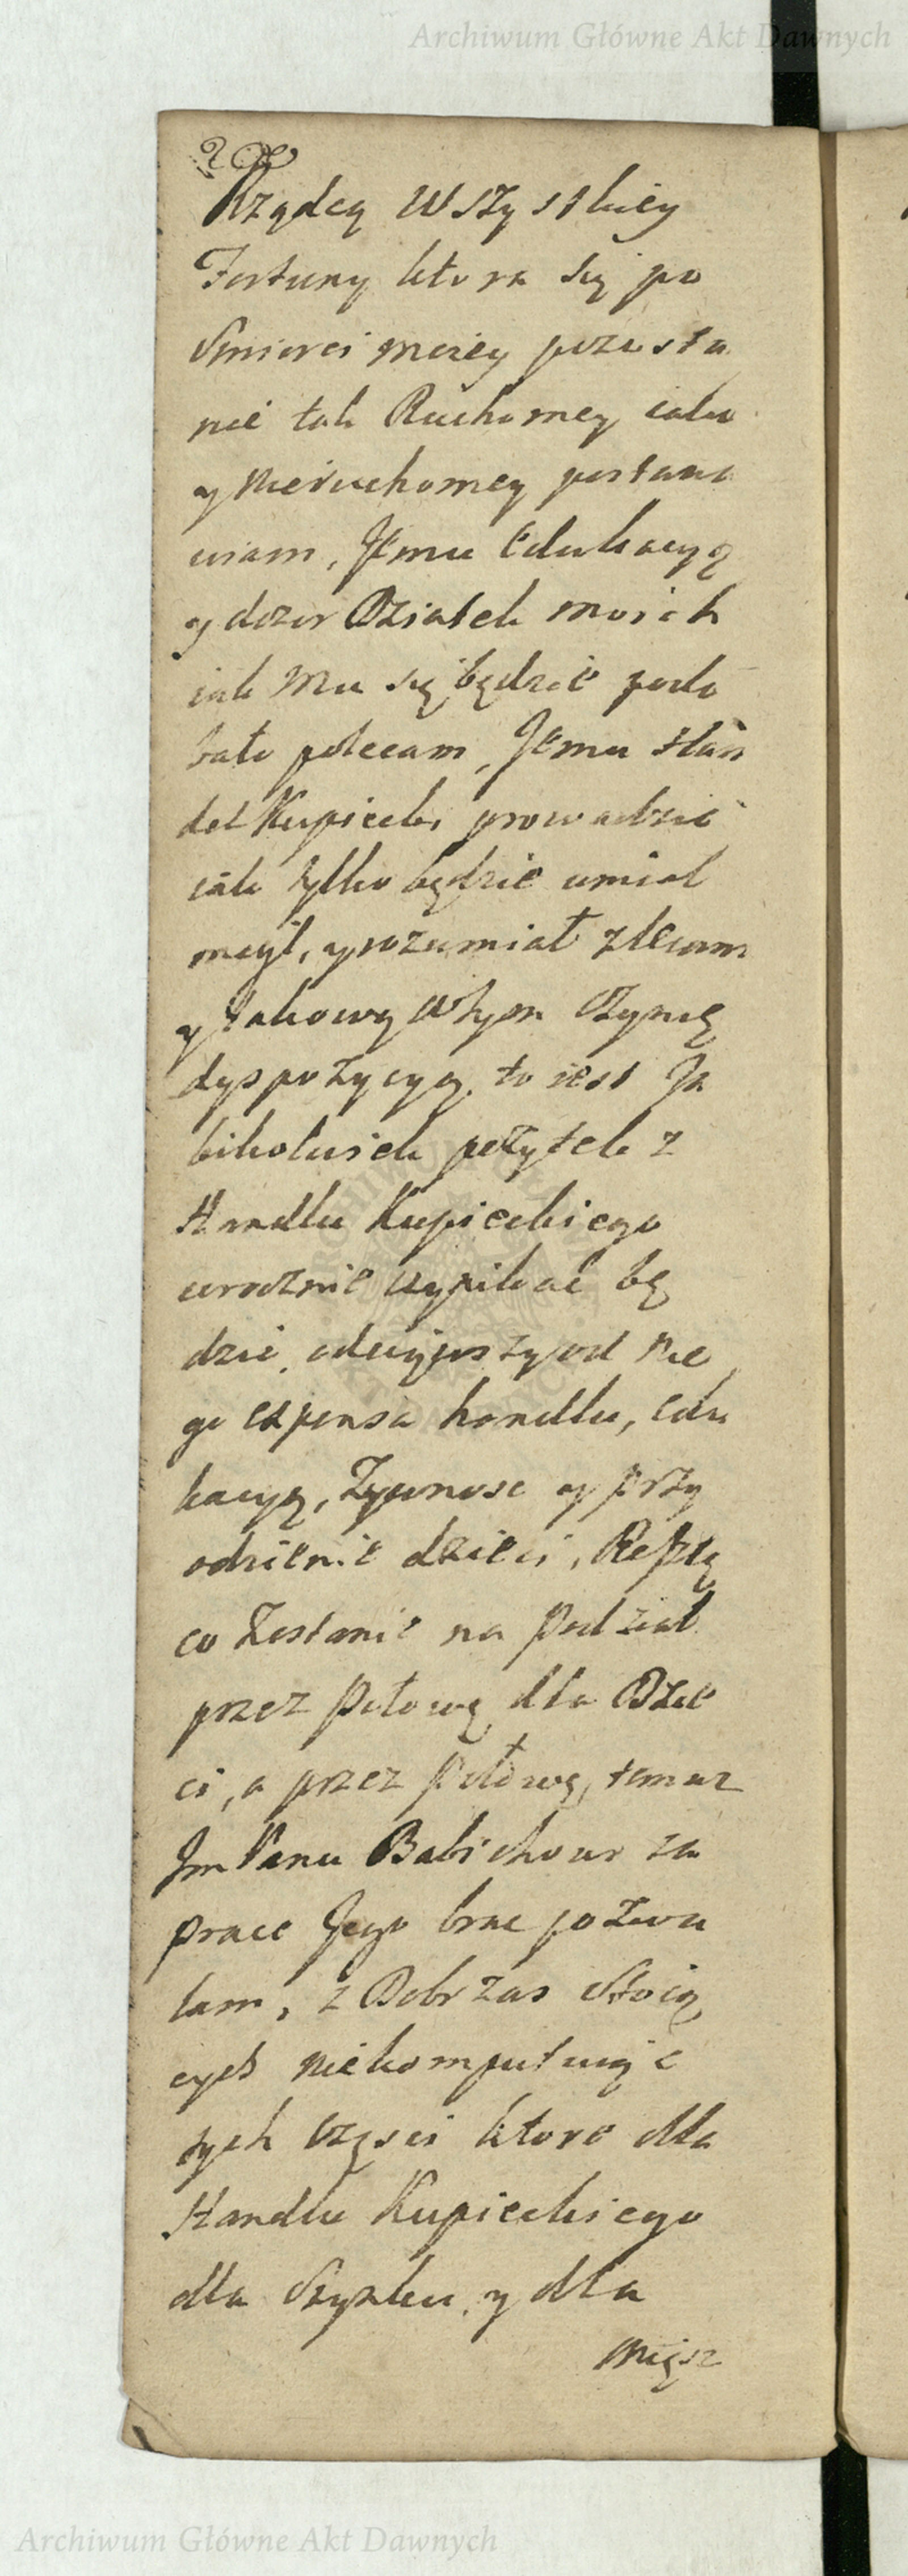 Archiwum Główne Akt Dawnych
Rządcą Wszystkiey
Fortuny ktora się po
Smierci moiey pozosta
nie tak Ruchomey iako
y Nieruchomey postano
wiam, Jemu Edukacyą
y dozor Dziatek moich
iak Mu się będzie podo
bało polecam, Jemu Han
del Kupiecki prowadzic
iak tylko będzie umiał
mogł, y rozumiał zlecam
y takową w tym Czynię
dyspozycyą, to iest Ja
kikolwiek pożytek z
Handlu Kupieckiego
corocznie wynikać bę
dzie, odciąwszy od nie
go expensa handlu, edu
kacyą, Żywnosc y przy
odzienie dzieci, Resztę
co Zostanie na Podział
przez Połowę dla Dzie
ci, a przez Połowę temuz
Jm Panu Babichowi za
prace Jego brac pozwa
lam, z Dobr zas Stoią
cych niekomputuiąc
tych Częsci ktore dla
Handlu Kupieckiego
dla Szynku y dla
Miesz
Archiwum Główne Akt Dawnych